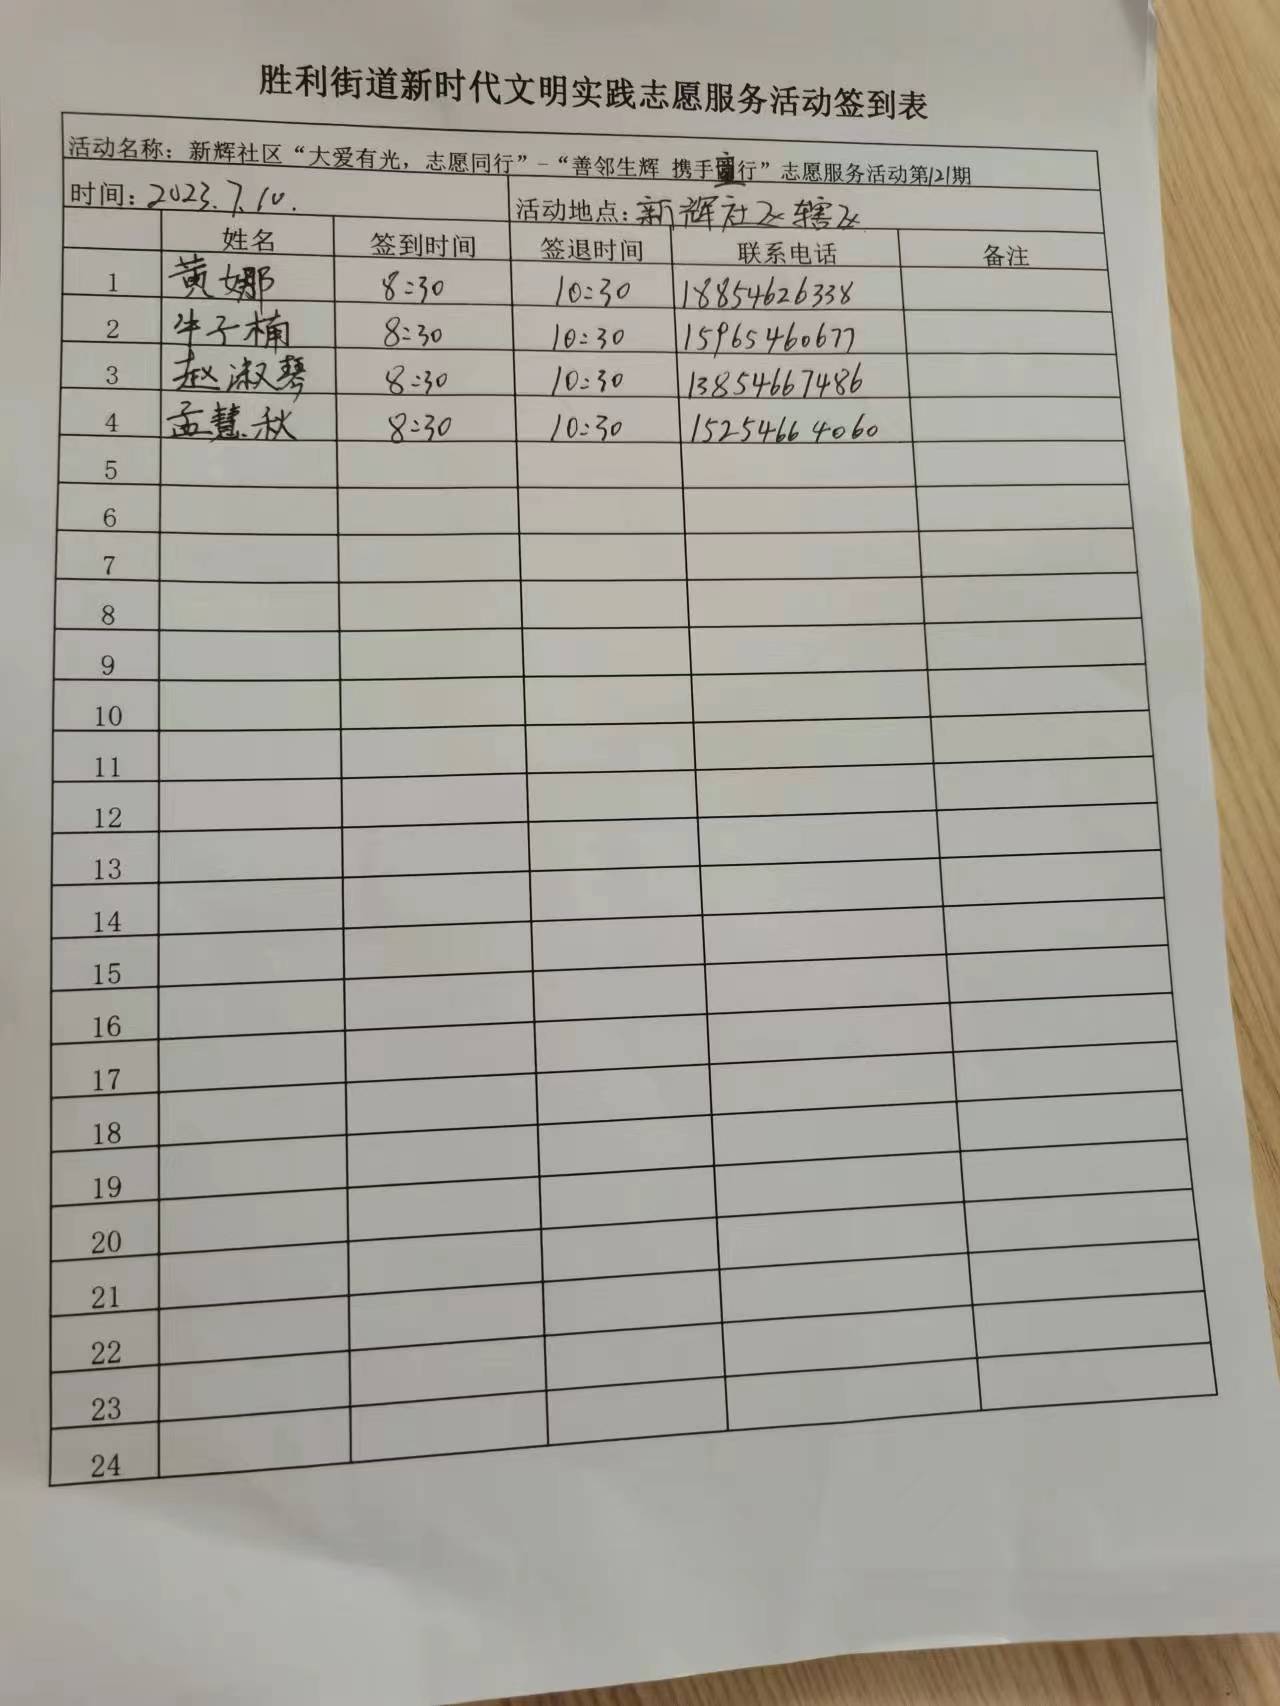 胜利街道新时代文明实践志愿服务活动签到表
活动名称：新辉社区“大爱有光，志愿同行”-“善邻生辉 携手行”志愿服务活动第121期
时间：2023.7.10. 活动地点：新辉社区辖区
姓名 签到时间 签退时间 联系电话 备注
1 黄娜 8:30 10:30 18854626338
2 牛子楠 8:30 10:30 15965460677
3 赵淑琴 8:30 10:30 13854667486
4 孟慧秋 8:30 10:30 15254664060
5
6
7
8
9
10
11
12
13
14
15
16
17
18
19
20
21
22
23
24